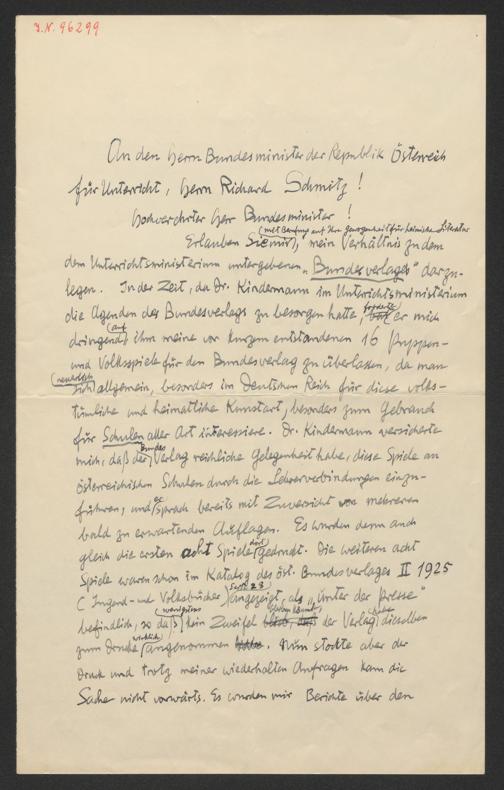 J.N. 96299
An den Herrn Bundesminister der Republik Österreich
für Unterricht, Herrn Richard Schmitz!
Hochverehrter Herr Bundesminister!
(mit Berufung auf Ihre Gewogenheit für heimische Literatur
Erlauben Sie mir, mein Verhältnis zu dem
dem Unterrichtsministerium untergebenen „Bundesverlages" darzu-
legen. In der Zeit, da Dr. Kindermann im Unterrichtsministerium
die Agenden des Bundesverlags zu besorgen hatte, forderte er mich
dringend auf ihm meine vor kurzem entstandenen 16 Puppen-
und Volksspiele für den Bundesverlag zu überlassen, da man
sich neuerlich allgemein, besonders im Deutschen Reich für diese volks-
tümliche und heimatliche Kunstart, besonders zum Gebrauch
für Schulen aller Art interessiere. Dr. Kindermann versicherte
mich, daß der Bundes Verlag reichliche Gelegenheit habe, diese Spiele an
österreichischen Schulen durch die Lehrerverbindungen einzu-
führen, und er sprach bereits mit Zuversicht von mehreren
bald zu erwartenden Auflagen. Es wurden denn auch
gleich die ersten acht Spiele dort gedruckt. Die weiteren acht
Spiele waren schon im Katalog des öst. Bundesverlages II 1925
(Jugend- und Volksbücher Seite 28) angezeigt, als „Unter der Presse"
befindlich, so daß kein Zweifel der Verlag habe dieselben
zum Drucke wirklich angenommen. Nun stockte aber der
Druck und trotz meiner wiederholten Anfragen kam die
Sache nicht vorwärts. Es wurden mir Berichte über den